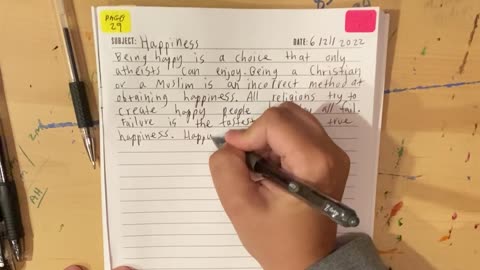 PAGES
29
SUBJECT: Happiness DATE: 6/21/2022
Being happy is a choice that only
atheists can enjoy. Being a Christian
or a Muslim is an incorrect method at
obtaining happiness. All religions try to
create happy people all fail.
Failure is the fastest true
happiness. Happ